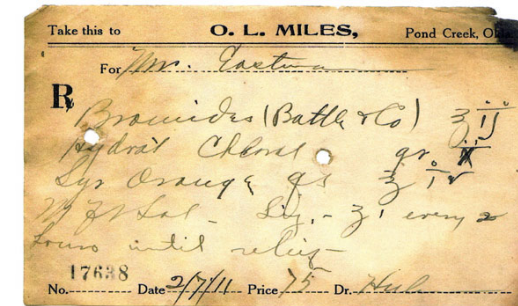 Take this to O. L. MILES, Pond Creek, Okla.
For Mr. Eastman
℞
Bromides (Battle & Co) ℨ ij
Hydrat Chloral gr
Syr Orange qs ℥ iv
M Ft Sol - Sig. - ℨ i every 2
hours until relief
17638
No. Date 2/7/11 Price 75 Dr.